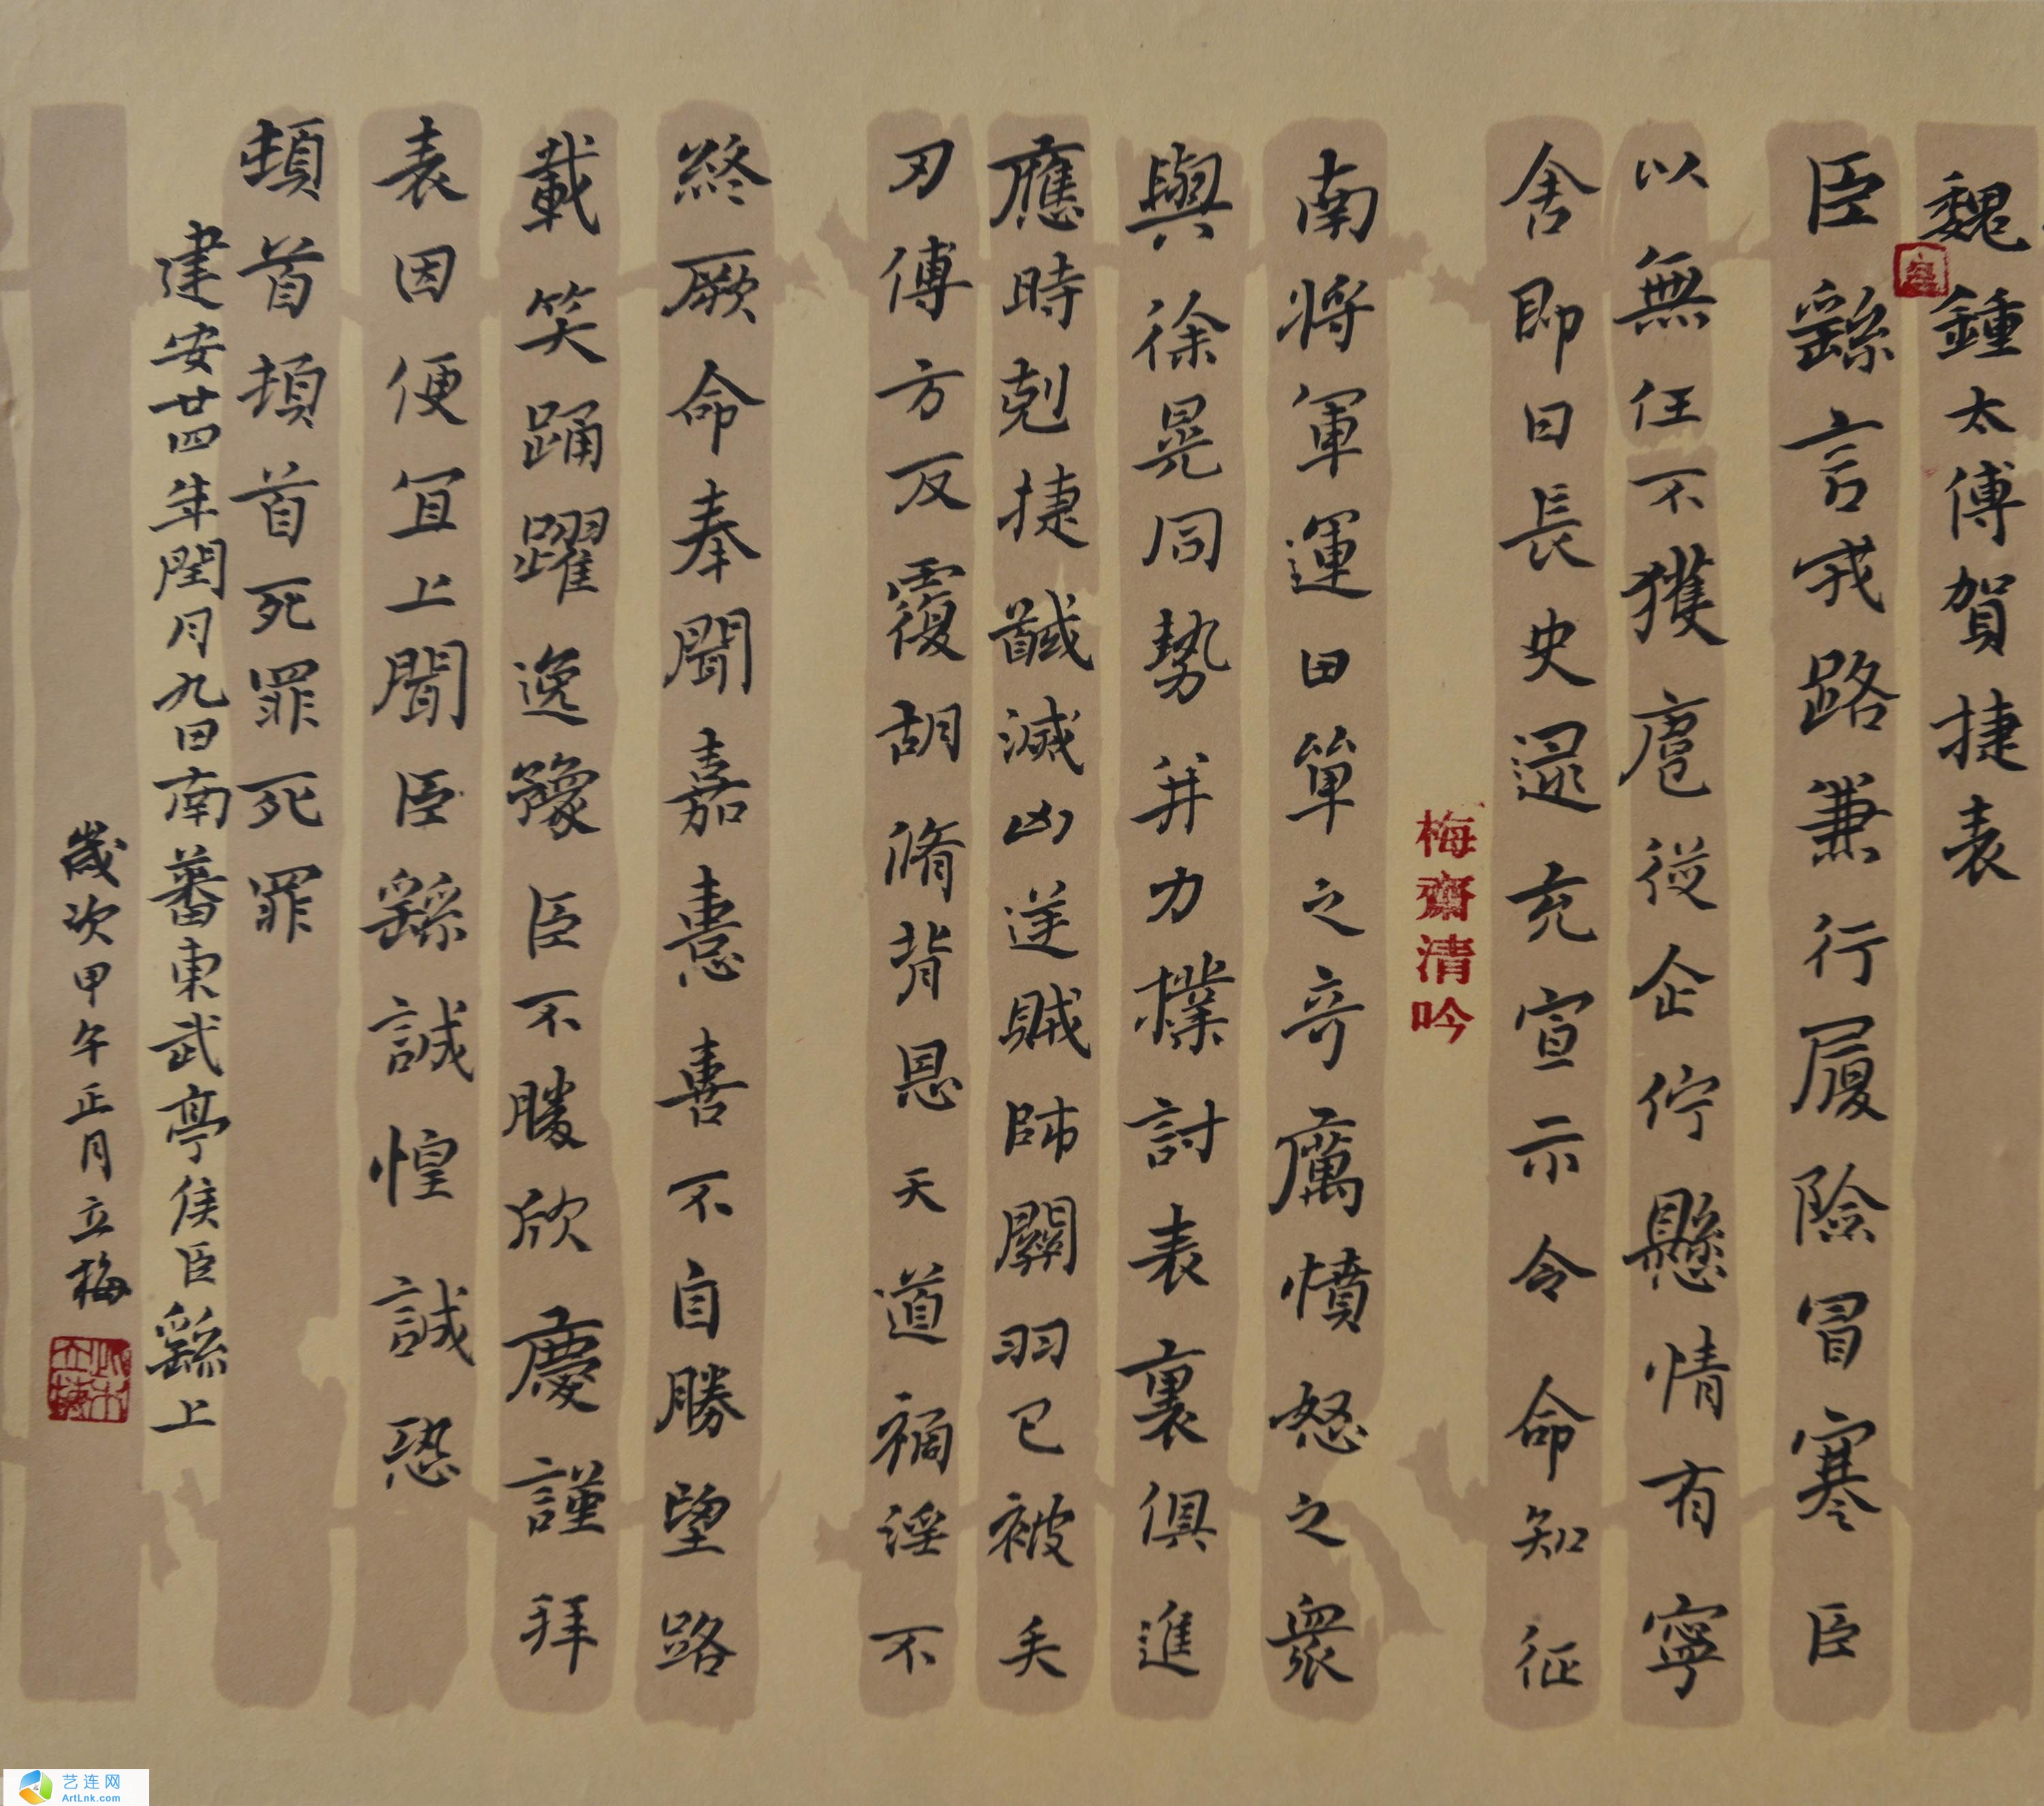 魏鍾太傅賀捷表
臣繇言戎路兼行履險冒寒臣
以無任不獲扈從企佇懸情有寧
舍即日長史逯充宣示令命知征
梅齋清吟
南將軍運田單之奇厲憤怒之眾
與徐晃同勢并力撲討表裏俱進
應時剋捷馘滅凶逆賊帥關羽已被矢
刃傅方反覆胡脩背恩天道禍淫不
終厥命奉聞嘉憙喜不自勝望路
載笑踊躍逸豫臣不勝欣慶謹拜
表因便宜上聞臣繇誠惶誠恐
頓首頓首死罪死罪
建安廿四年閏月九日南蕃東武亭侯臣繇上
歲次甲午正月立梅
艺连网
ArtLnk.com